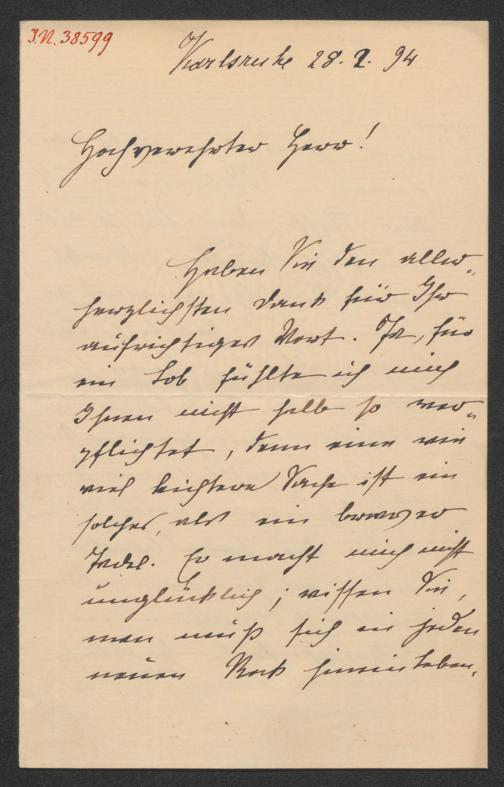 J.N. 38599
Karlsruhe 28. 2. 94
Hochverehrter Herr!
Haben Sie den aller-
herzlichsten Dank für Ihr
aufrichtiges Wort. Ja, für
ein Lob fühlte ich mich
Ihnen nicht halb so ver-
pflichtet, denn eine wie
viel leichtere Sache ist ein
solches, als ein
Tadel. Er macht mich nicht
unglücklich; wissen Sie,
man muß sich in jeden
neuen Rock hineinleben,